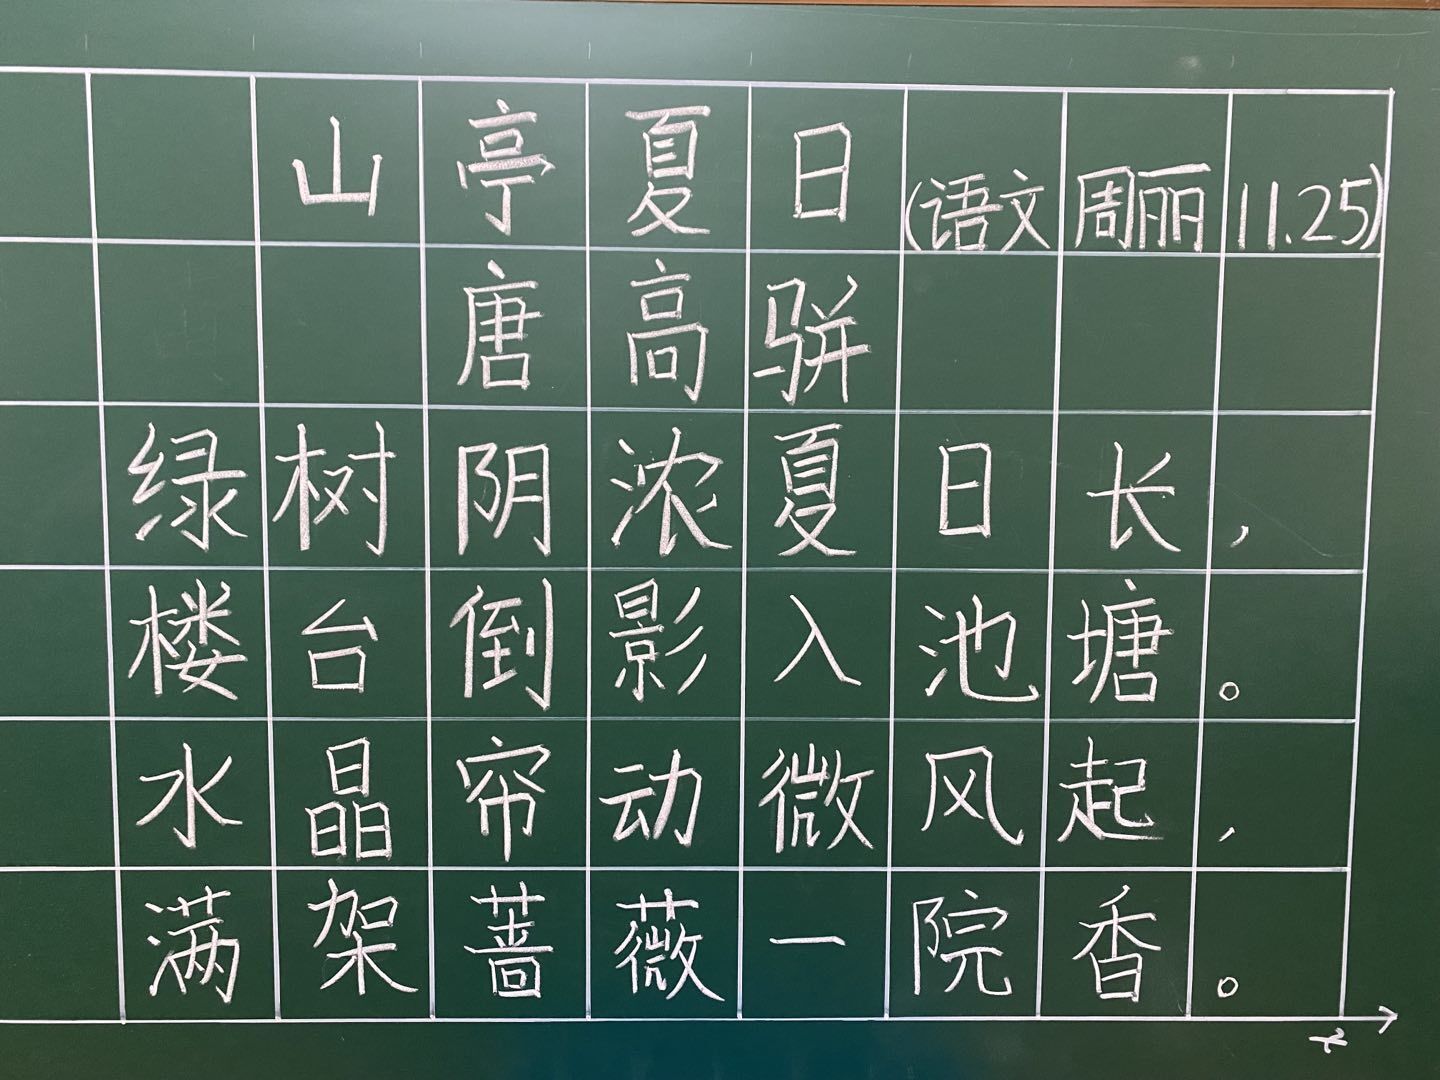 山亭夏日(语文周丽11.25)
唐高骈
绿树阴浓夏日长，
楼台倒影入池塘。
水晶帘动微风起，
满架蔷薇一院香。